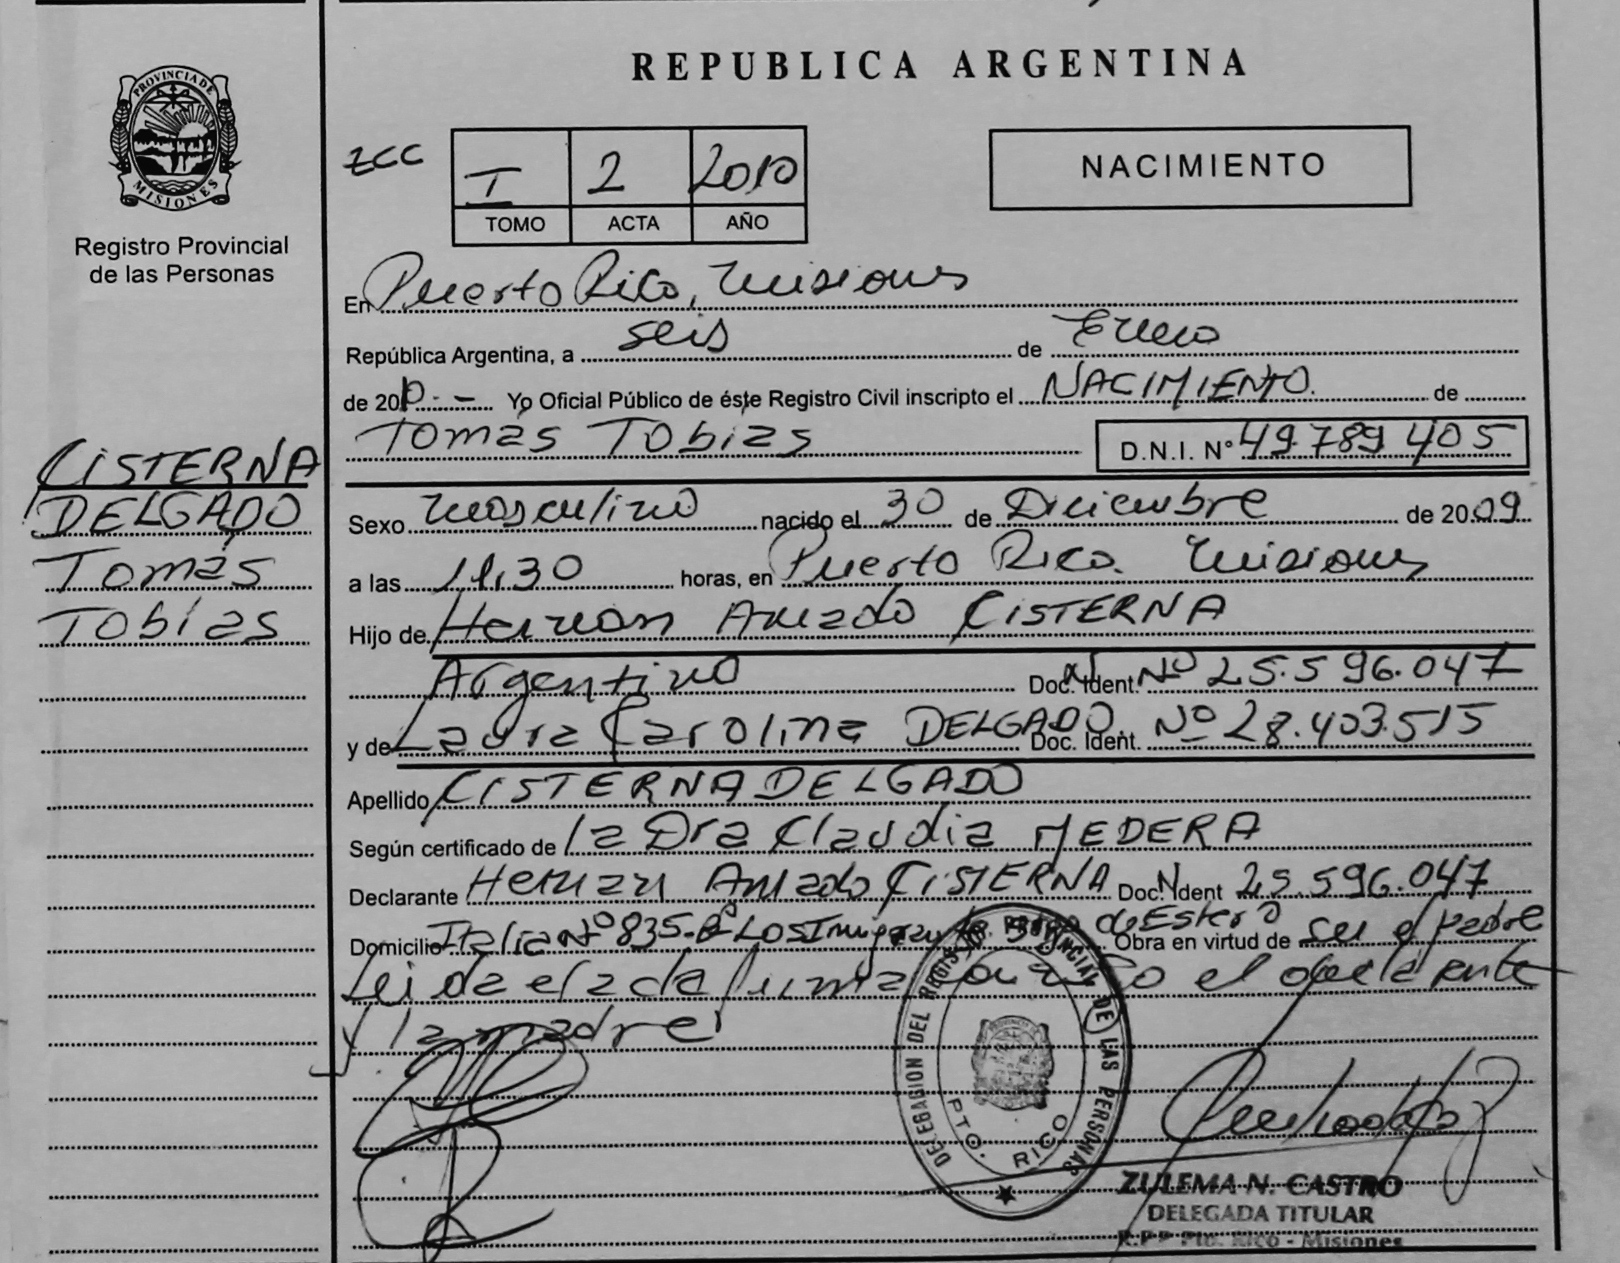 REPUBLICA ARGENTINA
PROVINCIA DE
MISIONES
Registro Provincial
de las Personas
ZCC
I 2 2010
TOMO ACTA AÑO
NACIMIENTO
En Puerto Rico, Misiones
República Argentina, a seis de Enero
de 2010.- Yo Oficial Público de éste Registro Civil inscripto el NACIMIENTO. de
Tomás Tobías
D.N.I. N° 49.789.405
CISTERNA
DELGADO
Tomás
Tobías
Sexo Masculino nacido el 30 de Diciembre de 2009
a las 11,30 horas, en Puerto Rico. Misiones
Hijo de Hernán Amado CISTERNA
Argentino Doc. Ident. Nº 25.596.047
y de Laura Carolina DELGADO. Doc. Ident. Nº 28.403.515
Apellido CISTERNA DELGADO
Según certificado de la Dra Claudia MEDERA
Declarante Hernán Amado CISTERNA Doc. Ident 25.596.047
Domicilio Italia Nº 835-Bº Los de Estero Obra en virtud de ser el padre
Leida el acta firma el
y la madre
DELEGACION DEL REGISTRO PROVINCIAL DE LAS PERSONAS
PTO. RICO
ZULEMA N. CASTRO
DELEGADA TITULAR
R.P.P Pto. Rico - Misiones